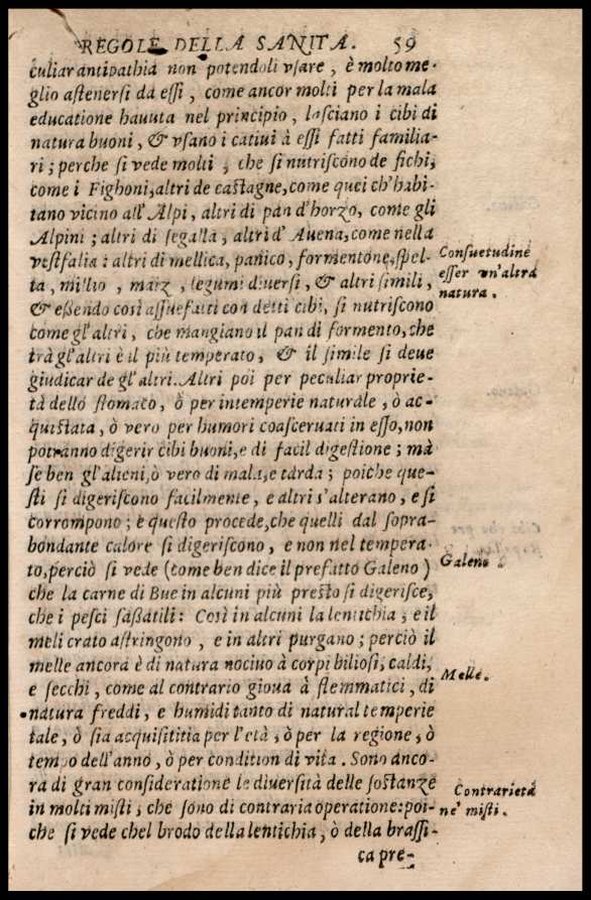 REGOLE DELLA SANITA. 59
culiar antipathia non potendoli vſare, è molto me-
glio aſtenerſi da eſſi, come ancor molti per la mala
educatione hauuta nel principio, laſciano i cibi di
natura buoni, & vſano i catiui à eſſi fatti familia-
ri; perche ſi vede molti, che ſi nutriſcono de fichi,
come i Fighoni, altri de caſtagne, come quei ch'habi-
tano vicino all'Alpi, altri di pan d'horzo, come gli
Alpini; altri di ſegalla, altri d'Auena, come nella
veſtfalia: altri di mellica, panico, formentone, ſpel-
ta, miglio, marz, legumi diuerſi, & altri ſimili,
& eßendo così aſſuefatti con detti cibi, ſi nutriſcono
come gl'altri, che mangiano il pan di formento, che
trà gl'altri è il più temperato, & il ſimile ſi deue
giudicar de gl'altri. Altri poi per peculiar proprie-
tà dello ſtomaco, ò per intemperie naturale, ò ac-
quiſtata, ò vero per humori coaſceruati in eſſo, non
potranno digerir cibi buoni, e di facil digeſtione; mà
ſe ben gl'alieni, ò vero di mala, e tarda; poiche que-
ſti ſi digeriſcono facilmente, e altri s'alterano, e ſi
corrompono; e queſto procede, che quelli dal ſopra-
bondante calore ſi digeriſcono, e non nel tempera-
to, perciò ſi vede (come ben dice il prefatto Galeno)
che la carne di Bue in alcuni più presto ſi digeriſce,
che i peſci ſaßatili: Così in alcuni la lentichia, e il
meli crato aſtringono, e in altri purgano; perciò il
melle ancora è di natura nociuo à corpi bilioſi, caldi,
e ſecchi, come al contrario gioua à flemmatici, di
natura freddi, e humidi tanto di natural temperie
tale, ò ſia acquiſititia per l'età, ò per la regione, ò
tempo dell'anno, ò per condition di vita. Sono anco-
ra di gran conſideratione le diuerſità delle ſoſtanze
in molti miſti, che ſono di contraria operatione: poi-
che ſi vede chel brodo della lentichia, ò della braſſi-
ca pre-
Conſuetudine
eſſer vn'altra
natura.
Galeno
Melle.
Contrarietà
ne' miſti.